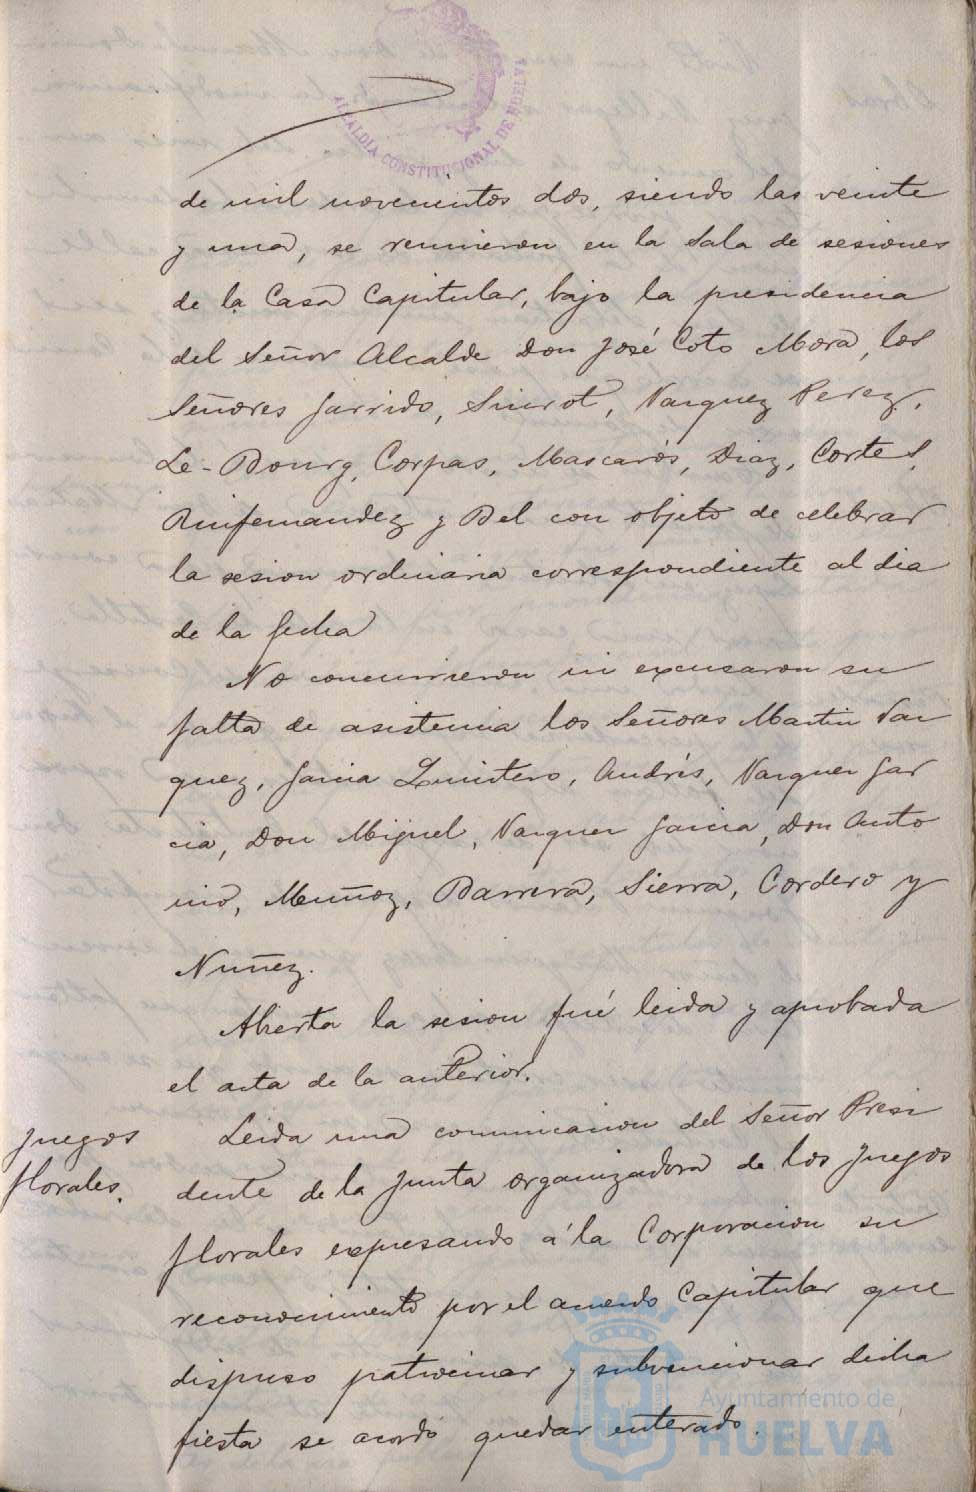 ALCALDIA CONSTITUCIONAL DE HUELVA
de mil novecientos dos, siendo las veinte
y una, se reunieron en la Sala de sesiones
de la Casa Capitular, bajo la presidencia
del Señor Alcalde Don José Coto Mora, los
Señores Garrido, Siurot, Vazquez Perez,
Le-Bourg, Corpas, Mascarós, Diaz, Cortes,
Ruifernandez y Bel con objeto de celebrar
la sesion ordinaria correspondiente al dia
de la fecha
No concurrieron ni excusaron su
falta de asistencia los Señores Martin Vaz
quez, Garcia Quintero, Andrés, Vazquez Gar
cia, Don Miguel, Vazquez Garcia, Don Anto
nio, Muñoz, Barrera, Sierra, Cordero y
Nuñez.
Abierta la sesion fué leida y aprobada
el acta de la anterior.
Juegos
florales.
Leida una comunicacion del Señor Presi
dente de la Junta organizadora de los Juegos
florales expresando á la Corporacion su
reconocimiento por el acuerdo Capitular que
dispuso patrocinar y subvencionar dicha
fiesta se acordó quedar enterado.
Ayuntamiento de
HUELVA